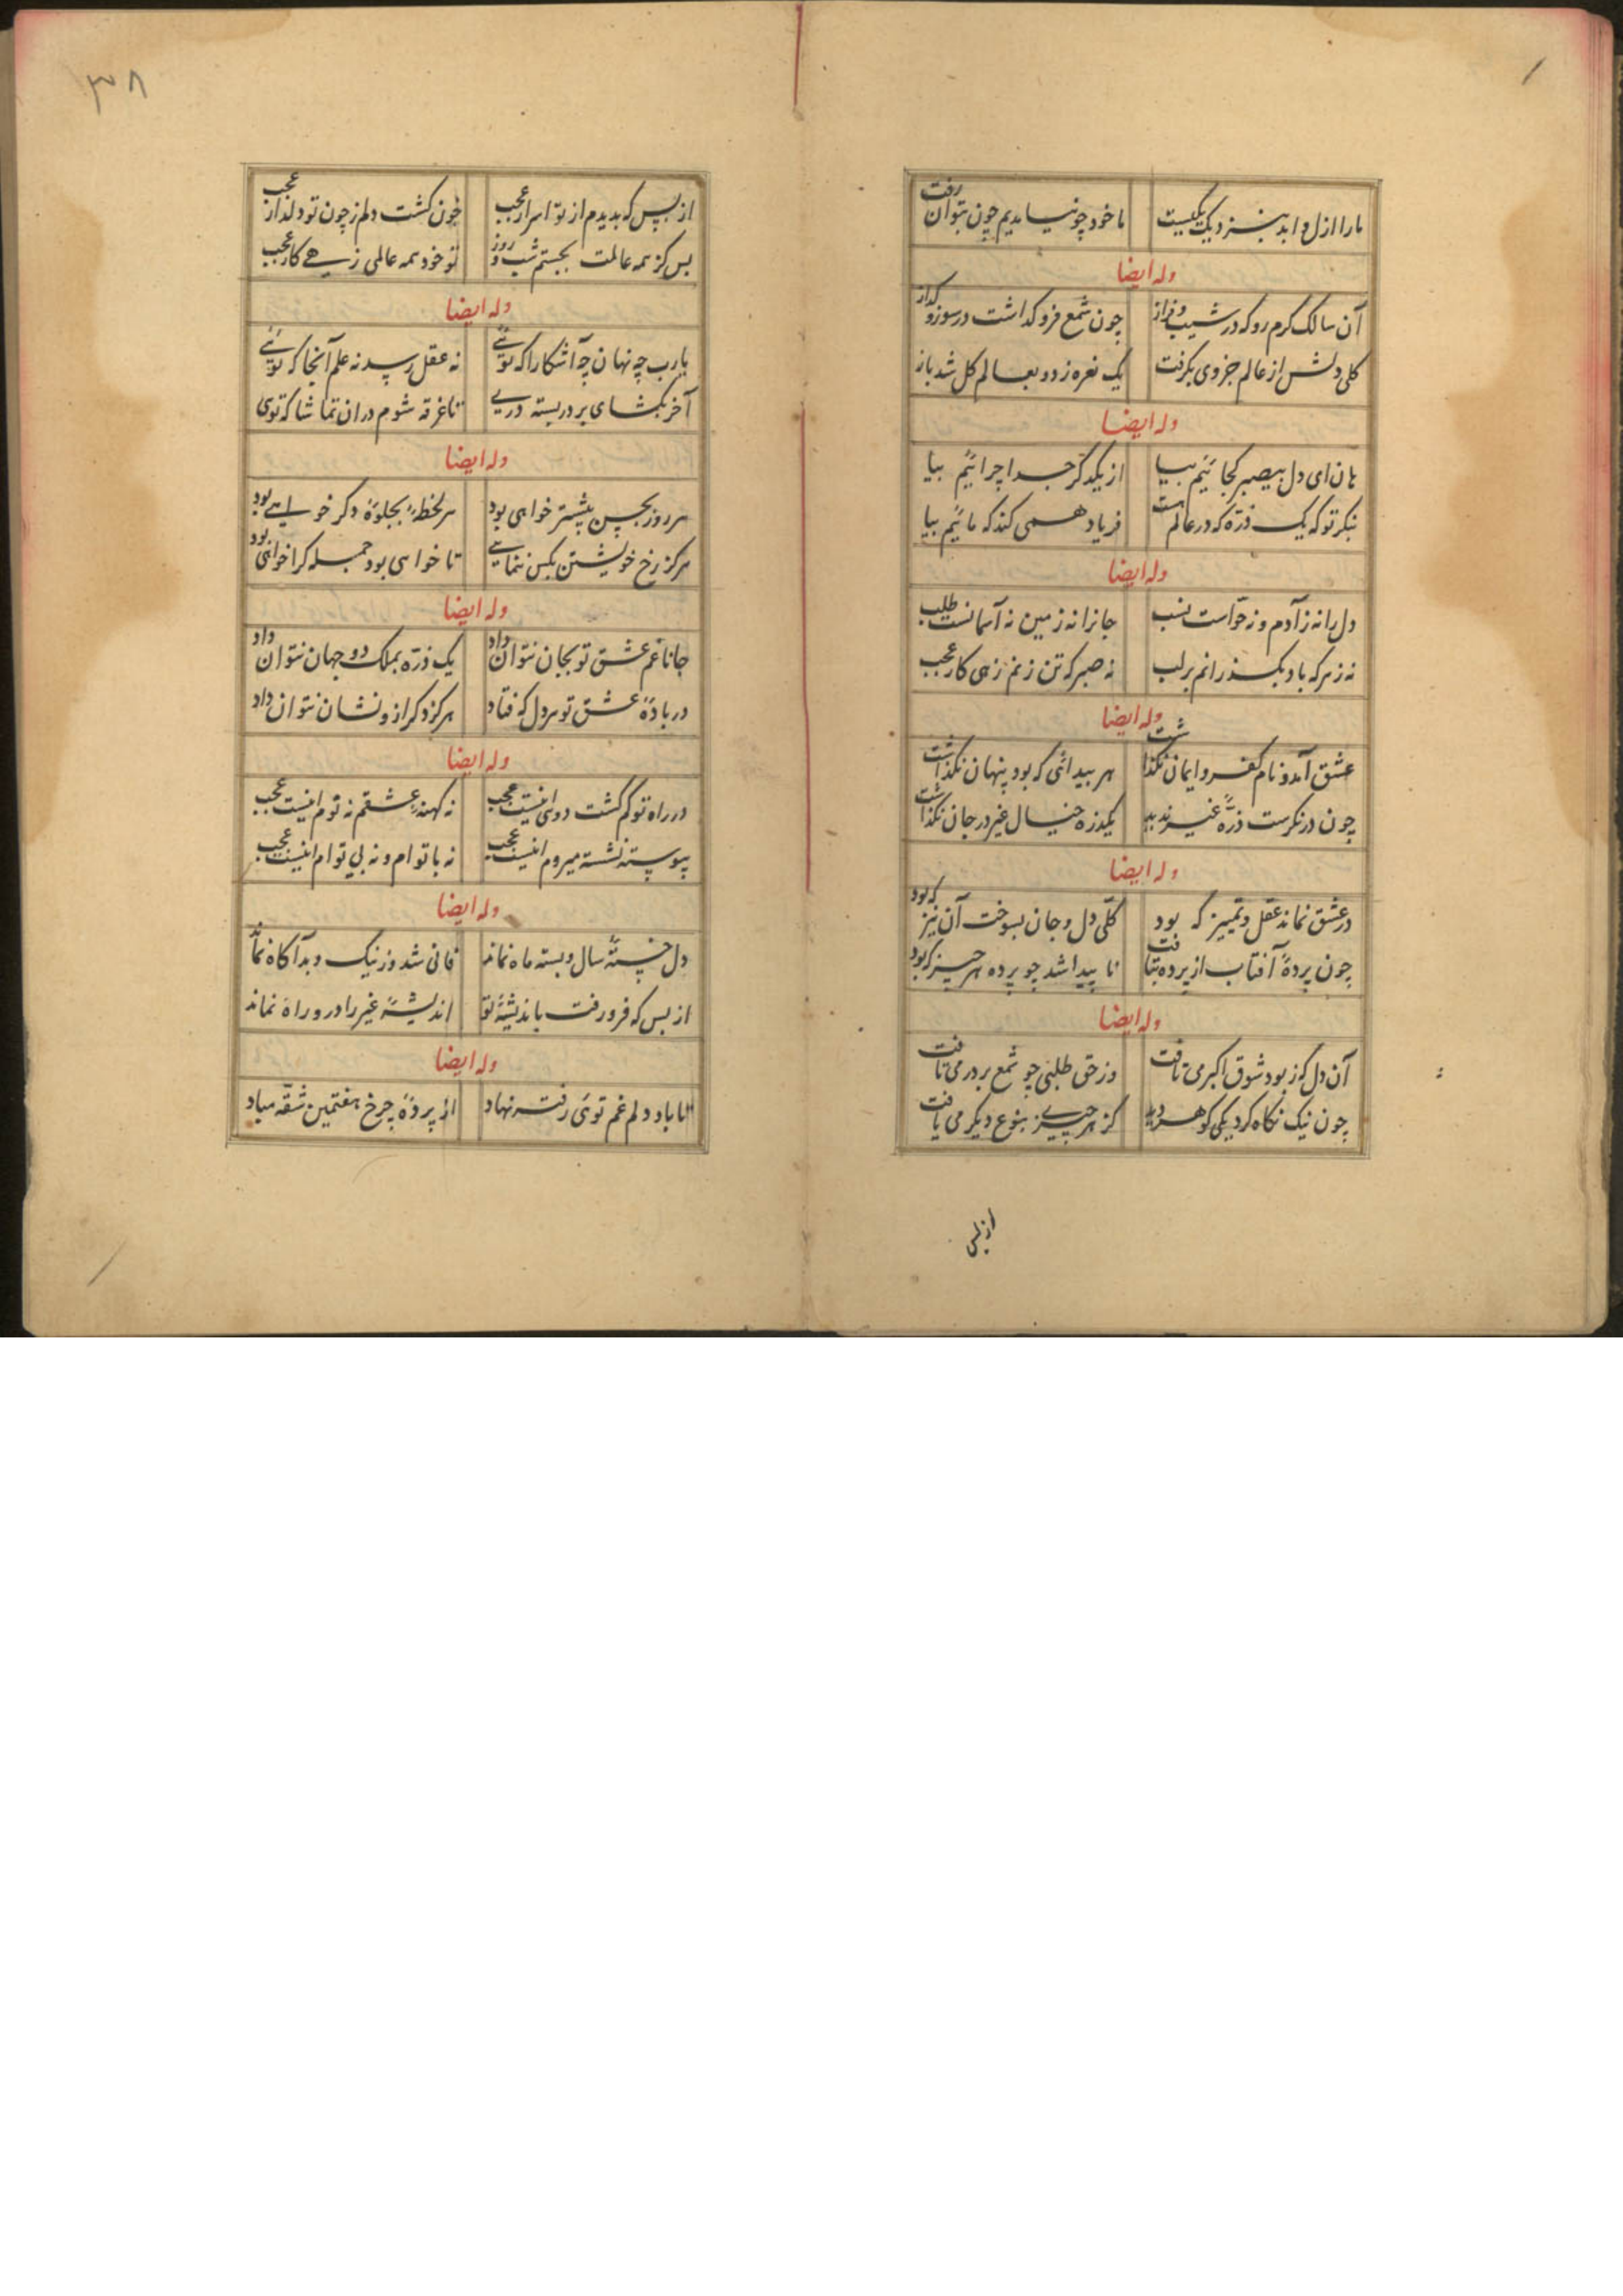 ما را ازل و ابد بنزدیک یکیست ما خود چو نیامدیم چون بتوان رفت
وله ایضا
آن سالک گرم رو که در شیب و فراز چون شمع فرو گداشت در سوز و گداز
کلی دلش از عالم جزوی بگرفت یک نعره زد و بعالم کل شد باز
وله ایضا
هان ای دل بیصبر کجائیم بیا از یکدگر جدا چرائیم بیا
بنگر تو که یک ذره که در عالم هست فریاد همی کند که مائیم بیا
وله ایضا
دل را نه ز آدم و نه حواست نسب جانرا نه زمین نه آسمانست طلب
نه زهر که باد بگذرانم بر لب نه صبر که تن زنم زهی کار عجب
وله ایضا
عشق آمد و نام کفر و ایمان نگذاشت هر پیدائی که بود پنهان نگذاشت
چون در نگرست ذرهٔ غیر ندید یکذره خیال غیر در جان نگذاشت
وله ایضا
در عشق نماند عقل و تمییز که بود کلی دل و جان بسوخت آن نیز که بود
چون پردهٔ آفتاب از پرده بتافت نا پیدا شد چو پرده هر چیز که بود
وله ایضا
آن دل که ز بود شوق اکبر می تافت وز حق طلبی چو شمع بر در می تافت
چون نیک نگاه کرد یکی گوهر دید کز هر چیز بنوع دیگر می یافت
از بس
۳۸
از بس که بدیدم از تو اسرار عجب خون گشت دلم ز چون تو دلدار عجب
بس کز همه عالمت بجستم شب و روز تو خود همه عالمی زهی کار عجب
وله ایضا
یارب چه نهان چه آشکارا که توئی نه عقل رسد نه علم آنجا که توئی
آخر بگشای بر در بسته دری تا غرقه شوم در ان تماشا که توی
وله ایضا
هر روز بحسن بیشتر خواهی بود هر لحظه بجلوهٔ دگر خواهی بود
هرگز رخ خویشتن بکس ننمائی تا خواهی بود جمله کرا خواهی بود
وله ایضا
جانا غم عشق تو بجان نتوان داد یک ذره بملک دو جهان نتوان داد
در بادهٔ عشق تو هر دل که فتاد هرگز دگر از و نشان نتوان داد
وله ایضا
در راه تو گم گشت دوئی اینت عجب نه کهنهٔ عشقم نه توم اینت عجب
پیوسته نشسته میروم اینت عجب نه با توام و نه بی توام اینت عجب
وله ایضا
دل خستهٔ سال و بسته ماه نماند فانی شد و ز نیک و بد آگاه نماند
از بس که فرو رفت باندیشهٔ تو اندیشهٔ غیر را درو راه نماند
وله ایضا
تا باد دلم غم توئی رفته نهاد از پردهٔ چرخ هفتمین شقه مباد